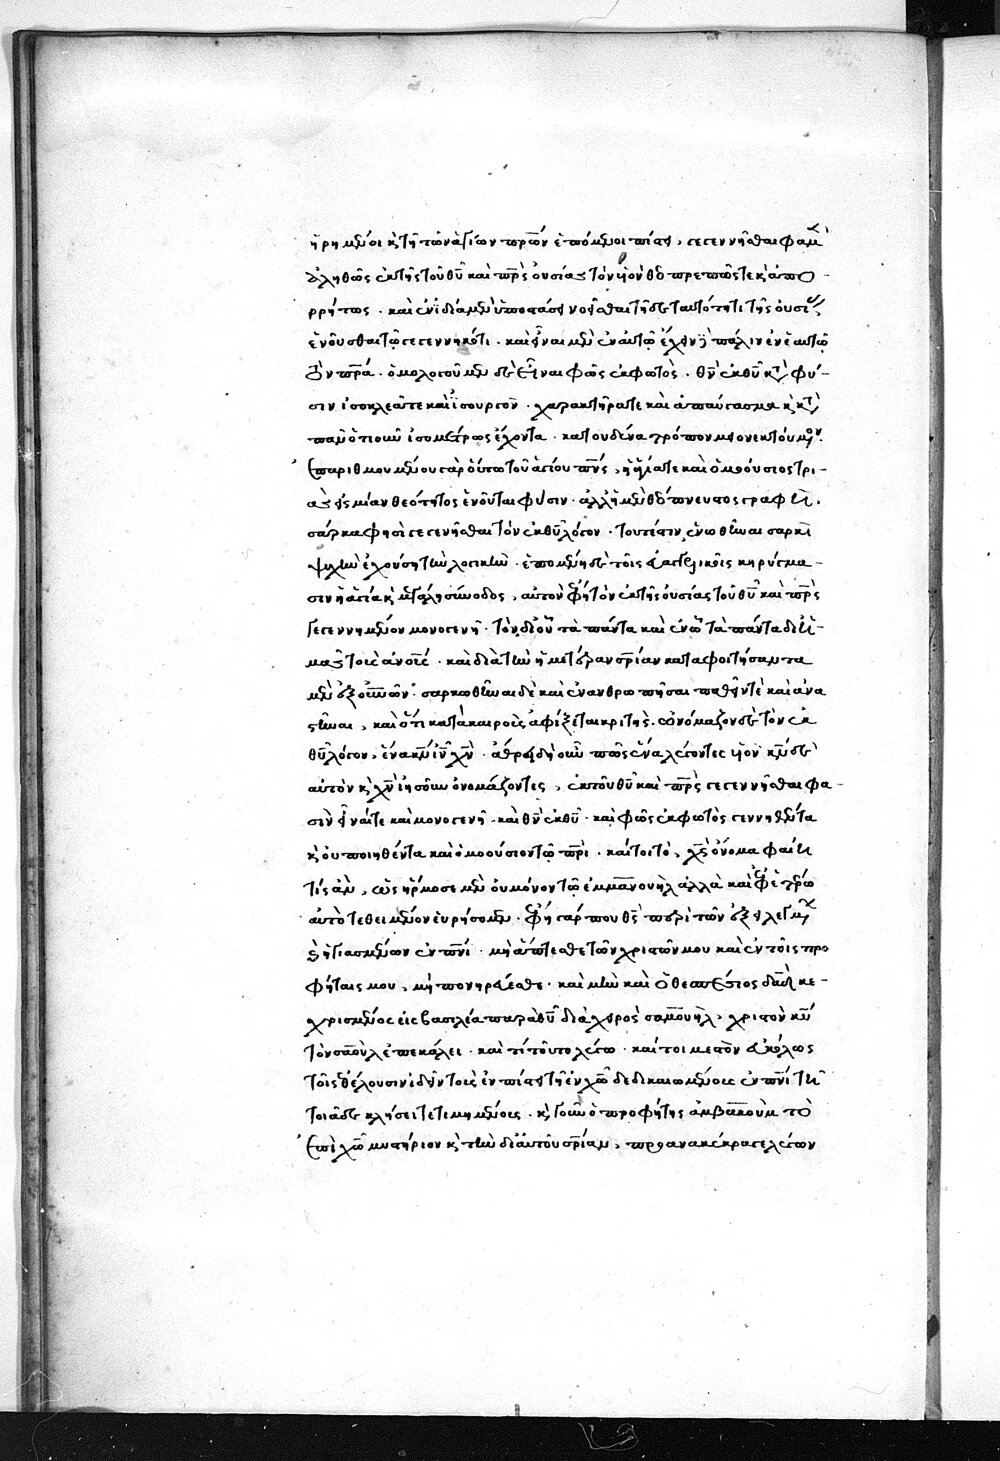 ἠρημένοι κ̀ τῆ τῶν ἁγίων πρ̅ων ἑπόμενοι πίστει, γεγεννῆσθαι φαμὲν
ἀληθῶς ἐκ τῆς τοῦ θυ̅ καὶ πρ̅ς οὐσίας τὸν υἱὸν θεοπρεπῶς τε κ̀ ἀπο-
ρρήτως · καὶ ἐν ἰδία μὲν ὑποστάσει νοεῖσθαι τῆ δὲ ταυτότητι τῆς οὐσίας
ἑνοῦσθαι τῶ γεγεννηκότι · καὶ εἶναι μὲν ἐν αὐτῶ ἔχειν δὲ πάλιν ἐν ἑαυτῶ
τὸν πρ̅α · ὁμολογοῦμεν δὲ εἶναι φῶς ἐκ φωτὸς · θν̅ ἐκ θυ̅ κατὰ φύ-
σιν ἰσοκλεᾶ τε καὶ ἰσουργὸν · χαρακτῆρα τε καὶ ἀπαύγασμα κ̀ κατὰ
πᾶν ὁτιοῦν ἰσομέτρως ἔχοντα · κατ' οὐδένα τρόπον μειονεκτούμενον.
ἐπαριθμουμένου γὰρ οὕτω τοῦ ἁγίου πν̅ς, ἡ ἁγία τε καὶ ὁμοούσιος τρι-
ὰς εἰς μίαν θεότητος ἑνοῦται φύσιν · ἀλλ' ἡ μὲν θεόπνευστος γραφὴ,
σάρκα φησὶ γεγενῆσθαι τὸν ἐκ θυ̅ λόγον · τουτέστιν ἑνωθῆναι σαρκὶ
ψυχὴν ἐχούση τὴν λογικὴν · ἑπομένη δὲ τοῖς εὐαγγελικοῖς κηρύγμα-
σιν ἡ ἁγία κ̀ μεγάλη σύνοδος, αὐτὸν ἔφη τὸν ἐκ τῆς οὐσίας τοῦ θυ̅ καὶ πρ̅ς
γεγεννημένον μονογενῆ · τὸν δι' οὗ τὰ πάντα καὶ ἐν ὧ τὰ πάντα δι' ἡ-
μᾶς τοὺς ἀνους̅ · καὶ διὰ τὴν ἡμετέραν σρ̅ίαν καταφοιτήσαντα
μὲν ἐξ οὐν̅ῶν · σαρκωθῆναι δὲ καὶ ἐνανθρωπῆσαι παθεῖν τὲ καὶ ἀνα
στῆναι, καὶ ὅτι κατὰ καιροὺς ἀφίξεται κριτὴς. ὠνόμαζον δὲ τὸν ἐκ
θυ̅ λόγον, ἕνα κν̅ ιν̅ χν̅ · ἄθρει δὴ οὖν πῶς ἕνα λέγοντες υἱὸν κν̅ δὲ
αὐτὸν κ̀ χν̅ ἰησοῦν ὀνομάζοντες, ἐκ τοῦ θυ̅ καὶ πρ̅ς γεγεννῆσθαι φα-
σὶν εἶναί τε καὶ μονογενῆ · καὶ θν̅ ἐκ θυ̅ · καὶ φῶς ἐκ φωτὸς γεννηθέντα
κ̀ οὐ ποιηθέντα καὶ ὁμοούσιον τῶ πρ̅ι · καίτοι τὸ, χς̅ ὄνομα φαίη
τίς ἂν, ὡς ἥρμοσε μὲν οὐ μόνον τῶ ἐμμανουὴλ ἀλλὰ καὶ ἐφ' ἑτέρω
αὐτὸ τεθειμένον εὑρήσομεν · ἔφη γάρ που θς̅ περὶ τῶν ἐξειλεγμένων
κ̀ ἡγιασμένων ἐν πν̅ι · μὴ ἅπτεσθε τῶν χριστῶν μου καὶ ἐν τοῖς προ
φήταις μου, μὴ πονηρεύεσθε · καὶ μὴν καὶ ὁ θεσπέσιος δα̅δ κε-
χρισμένος εἰς βασιλέα παρὰ θυ̅ διὰ χειρὸς σαμουὴλ, χριστὸν κυ̅
τὸν σαοὺλ ἐπεκάλει · καὶ τί τοῦτο λέγω · καίτοι μετὸν εὐκόλως
τοῖς θέλουσιν ἰδεῖν τοὺς ἐν πίστει τῆ ἐν χω̅ δεδικαιωμένους ἐν πν̅ι τῆ
τοιᾶδε κλήσει τετιμημένους · κ̀ γοῦν ὁ προφήτης ἀμβακοὺμ τὸ
ἐπὶ χω̅ μυστήριον κ̀ τὴν δι' αὐτοῦ σρ̅ίαν, προανακέκραγε λέγων